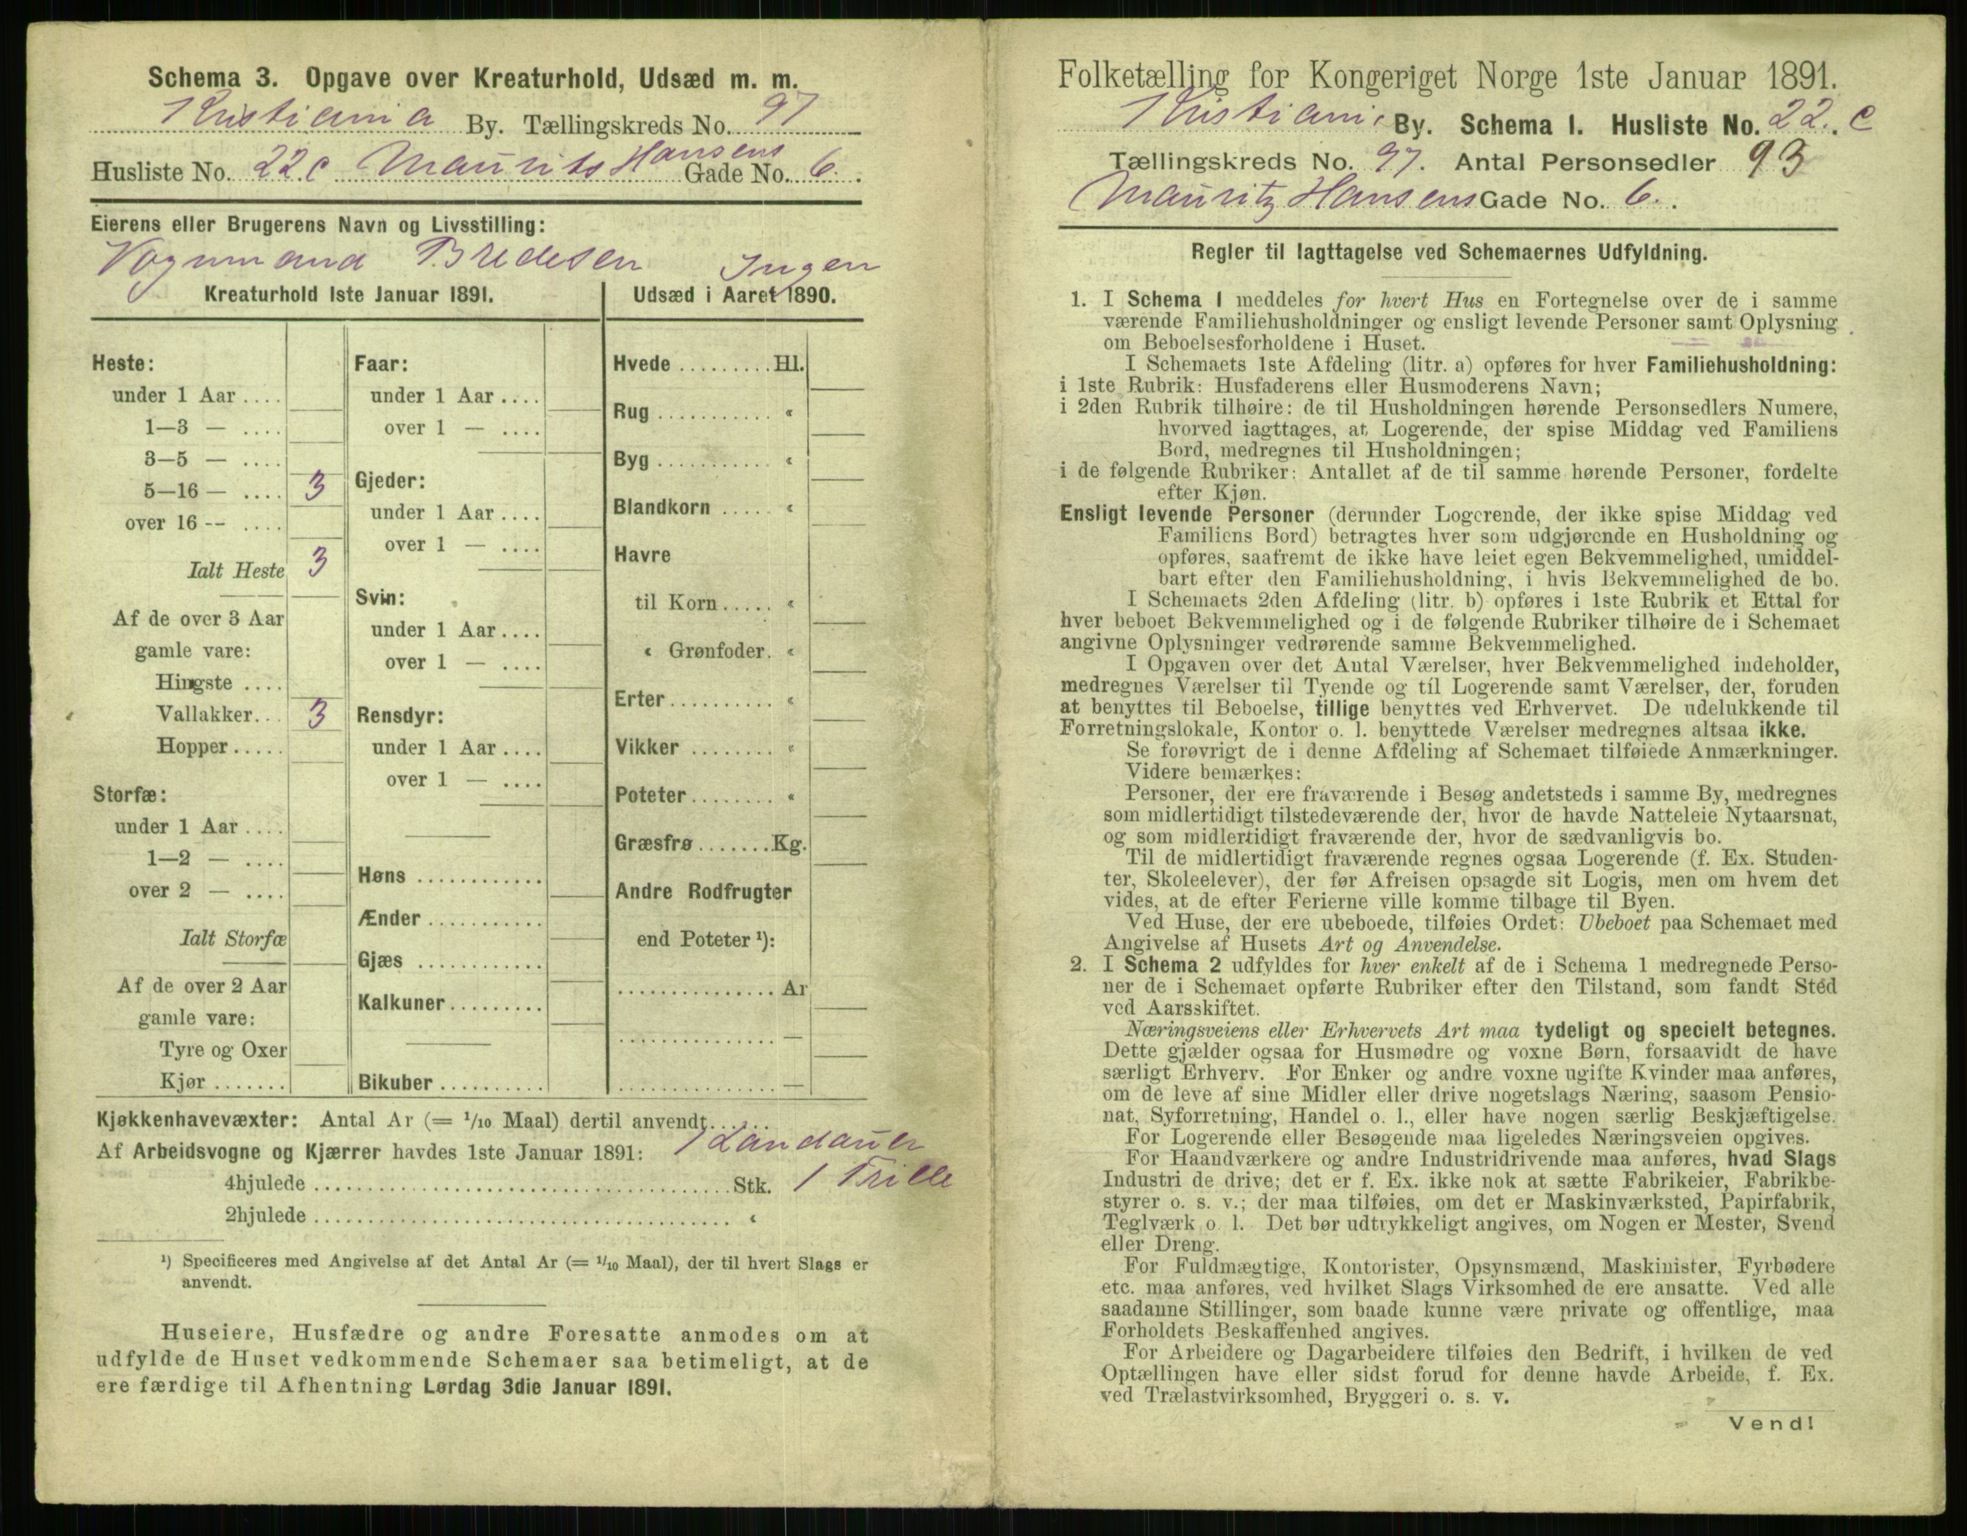 Schema 3. Opgave over Kreaturhold, Udsæd m. m.
Kristiania By. Tællingskreds No. 97
Husliste No. 22c Maurits Hansens Gade No. 6.
Eierens eller Brugerens Navn og Livsstilling:
Vognmand Bredesen Ingen
Kreaturhold 1ste Januar 1891.
Heste:
under 1 Aar ....
1—3 — ....
3—5 — ....
5—16 — .... 3
over 16 -- ....
Ialt Heste 3
Af de over 3 Aar
gamle vare:
Hingste ....
Vallakker... 3
Hopper.....
Storfæ:
under 1 Aar ....
1—2 — ....
over 2 — ....
Ialt Storfæ
Af de over 2 Aar
gamle vare:
Tyre og Oxer
Kjør .......
Faar:
under 1 Aar ....
over 1 — ....
Gjeder:
under 1 Aar ....
over 1 — ....
Svin:
under 1 Aar ....
over 1 — ....
Rensdyr:
under 1 Aar ....
over 1 — ....
Høns ............
Ænder ...........
Gjæs ............
Kalkuner.........
Bikuber ..........
Udsæd i Aaret 1890.
Hvede ......... Hl.
Rug ........... «
Byg ........... «
Blandkorn ..... «
Havre
til Korn..... «
« Grønfoder. «
Erter......... «
Vikker ....... «
Poteter....... «
Græsfrø ...... Kg.
Andre Rodfrugter
end Poteter ¹):
............... Ar
............... —
............... —
Kjøkkenhavevæxter: Antal Ar (= 1/10 Maal) dertil anvendt......
Af Arbeidsvogne og Kjærrer havdes 1ste Januar 1891: 1 Landauer
4hjulede ................................ Stk. 1 Trille
2hjulede ................................ «
¹) Specificeres med Angivelse af det Antal Ar (= 1/10 Maal), der til hvert Slags er
anvendt.
Huseiere, Husfædre og andre Foresatte anmodes om at
udfylde de Huset vedkommende Schemaer saa betimeligt, at de
ere færdige til Afhentning Lørdag 3die Januar 1891.
Folketælling for Kongeriget Norge 1ste Januar 1891.
Kristiania By. Schema I. Husliste No. 22.c
Tællingskreds No. 97. Antal Personsedler 93
Mauritz Hansens Gade No. 6.
Regler til Iagttagelse ved Schemaernes Udfyldning.
1. I Schema 1 meddeles for hvert Hus en Fortegnelse over de i samme
værende Familiehusholdninger og ensligt levende Personer samt Oplysning
om Beboelsesforholdene i Huset.
I Schemaets 1ste Afdeling (litr. a) opføres for hver Familiehusholdning:
i 1ste Rubrik: Husfaderens eller Husmoderens Navn;
i 2den Rubrik tilhøire: de til Husholdningen hørende Personsedlers Numere,
hvorved iagttages, at Logerende, der spise Middag ved Familiens
Bord, medregnes til Husholdningen;
i de følgende Rubriker: Antallet af de til samme hørende Personer, fordelte
efter Kjøn.
Ensligt levende Personer (derunder Logerende, der ikke spise Middag ved
Familiens Bord) betragtes hver som udgjørende en Husholdning og
opføres, saafremt de ikke have leiet egen Bekvemmelighed, umiddel-
bart efter den Familiehusholdning, i hvis Bekvemmelighed de bo.
I Schemaets 2den Afdeling (litr. b) opføres i 1ste Rubrik et Ettal for
hver beboet Bekvemmelighed og i de følgende Rubriker tilhøire de i Schemaet
angivne Oplysninger vedrørende samme Bekvemmelighed.
I Opgaven over det Antal Værelser, hver Bekvemmelighed indeholder,
medregnes Værelser til Tyende og til Logerende samt Værelser, der, foruden
at benyttes til Beboelse, tillige benyttes ved Erhvervet. De udelukkende til
Forretningslokale, Kontor o. l. benyttede Værelser medregnes altsaa ikke.
Se forøvrigt de i denne Afdeling af Schemaet tilføiede Anmærkninger.
Videre bemærkes:
Personer, der ere fraværende i Besøg andetsteds i samme By, medregnes
som midlertidigt tilstedeværende der, hvor de havde Natteleie Nytaarsnat,
og som midlertidigt fraværende der, hvor de sædvanligvis bo.
Til de midlertidigt fraværende regnes ogsaa Logerende (f. Ex. Studen-
ter, Skoleelever), der før Afreisen opsagde sit Logis, men om hvem det
vides, at de efter Ferierne ville komme tilbage til Byen.
Ved Huse, der ere ubeboede, tilføies Ordet: Ubeboet paa Schemaet med
Angivelse af Husets Art og Anvendelse.
2. I Schema 2 udfyldes for hver enkelt af de i Schema 1 medregnede Perso-
ner de i Schemaet opførte Rubriker efter den Tilstand, som fandt Sted
ved Aarsskiftet.
Næringsveiens eller Erhvervets Art maa tydeligt og specielt betegnes.
Dette gjælder ogsaa for Husmødre og voxne Børn, forsaavidt de have
særligt Erhverv. For Enker og andre voxne ugifte Kvinder maa anføres,
om de leve af sine Midler eller drive nogetslags Næring, saasom Pensio-
nat, Syforretning, Handel o. l., eller have nogen særlig Beskjæftigelse.
For Logerende eller Besøgende maa ligeledes Næringsveien opgives.
For Haandværkere og andre Industridrivende maa anføres, hvad Slags
Industri de drive; det er f. Ex. ikke nok at sætte Fabrikeier, Fabrikbe-
styrer o. s. v.; der maa tilføies, om det er Maskinværksted, Papirfabrik,
Teglværk o. l. Det bør udtrykkeligt angives, om Nogen er Mester, Svend
eller Dreng.
For Fuldmægtige, Kontorister, Opsynsmænd, Maskinister, Fyrbødere
etc. maa anføres, ved hvilket Slags Virksomhed de ere ansatte. Ved alle
saadanne Stillinger, som baade kunne være private og offentlige, maa
Forholdets Beskaffenhed angives.
For Arbeidere og Dagarbeidere tilføies den Bedrift, i hvilken de ved
Optællingen have eller sidst forud for denne havde Arbeide, f. Ex.
ved Trælastvirksomhed, Bryggeri o. s. v.
Vend!